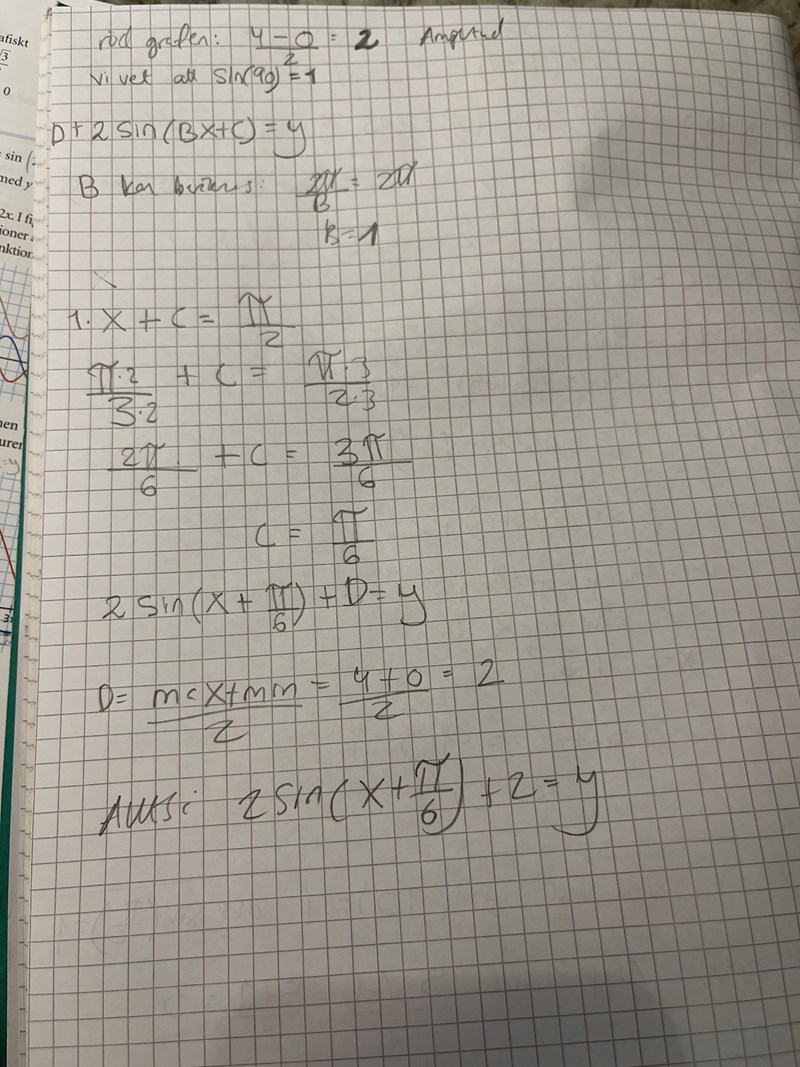 afiskt
√3
0
sin (
med y
2x. I fi
ioner
nktion
nen
urer
röd grafen: (4-0)/2 = 2 Amplitud
vi vet att sin(90)=1
D+2 sin(Bx+C)=y
B kan : 2π/B = 2π
B=1
1. x + C = π/2
π·2/3·2 + C = π·3/2·3
2π/6 + C = 3π/6
C = π/6
2 sin(x + π/6) + D = y
D= max+min/2 = 4+0/2 = 2
2 sin(x + π/6) + 2 = y